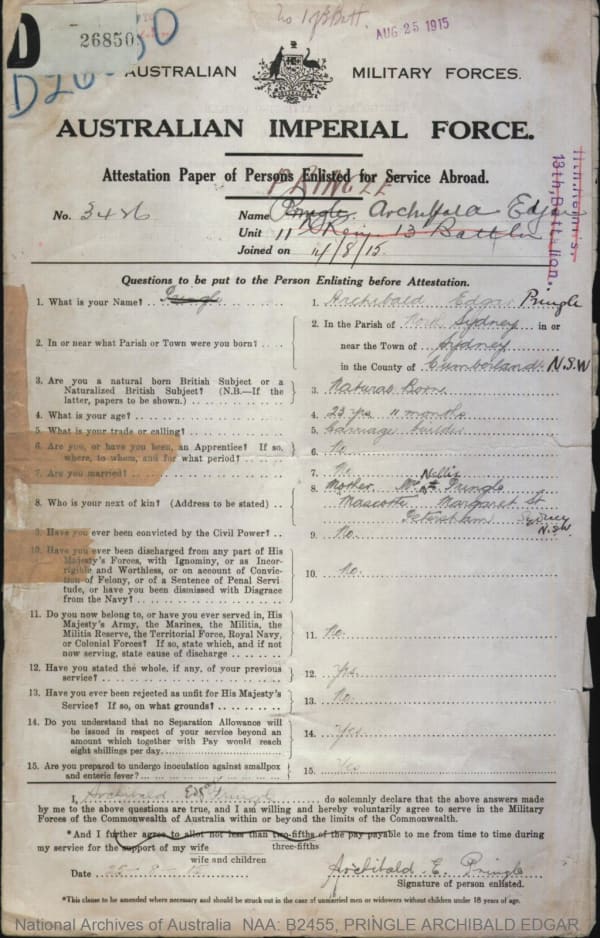 To 13 Batt.
AUG 25 1915
D
26850
AUSTRALIAN MILITARY FORCES.
AUSTRALIAN IMPERIAL FORCE.
Attestation Paper of Persons Enlisted for Service Abroad.
PRINGLE
No. 3426 Name Pringle Archibald Edgar
Unit 11th Rein 13 Battln
Joined on 11/8/15
11th Reinf's.
13th Battalion.
Questions to be put to the Person Enlisting before Attestation.
1. What is your Name? 1. Archibald Edgar Pringle
2. In or near what Parish or Town were you born? 2. In the Parish of North Sydney in or
near the Town of Sydney
in the County of Cumberland N.S.W
3. Are you a natural born British Subject or a
Naturalized British Subject? (N.B.—If the
latter, papers to be shown.) 3. Natural Born
4. What is your age? 4. 23 yrs 11 months
5. What is your trade or calling? 5. Carriage builder
6. Are you, or have you been, an Apprentice? If so,
where, to whom, and for what period? 6. No
7. Are you married? 7. No
8. Who is your next of kin? (Address to be stated) 8. Mother Nellie Pringle
Mascotte Margaret St
Petersham Sydney
N.S.W.
9. Have you ever been convicted by the Civil Power? 9. No.
10. Have you ever been discharged from any part of His
Majesty's Forces, with Ignominy, or as Incor-
rigible and Worthless, or on account of Convic-
tion of Felony, or of a Sentence of Penal Servi-
tude, or have you been dismissed with Disgrace
from the Navy? 10. No.
11. Do you now belong to, or have you ever served in, His
Majesty's Army, the Marines, the Militia, the
Militia Reserve, the Territorial Force, Royal Navy,
or Colonial Forces? If so, state which, and if not
now serving, state cause of discharge 11. No.
12. Have you stated the whole, if any, of your previous
service? 12. Yes.
13. Have you ever been rejected as unfit for His Majesty's
Service? If so, on what grounds? 13. No.
14. Do you understand that no Separation Allowance will
be issued in respect of your service beyond an
amount which together with Pay would reach
eight shillings per day. 14. Yes.
15. Are you prepared to undergo inoculation against smallpox
and enteric fever? 15. Yes
I, Archibald Edgr Pringle do solemnly declare that the above answers made
by me to the above questions are true, and I am willing and hereby voluntarily agree to serve in the Military
Forces of the Commonwealth of Australia within or beyond the limits of the Commonwealth.
*And I further agree to allot not less than two-fifths of the pay payable to me from time to time during
three-fifths
my service for the support of my wife
wife and children
Date 25-8-15 Archibald E. Pringle
Signature of person enlisted.
*This clause to be amended where necessary and should be struck out in the case of unmarried men or widowers without children under 18 years of age.
National Archives of Australia NAA: B2455, PRINGLE ARCHIBALD EDGAR